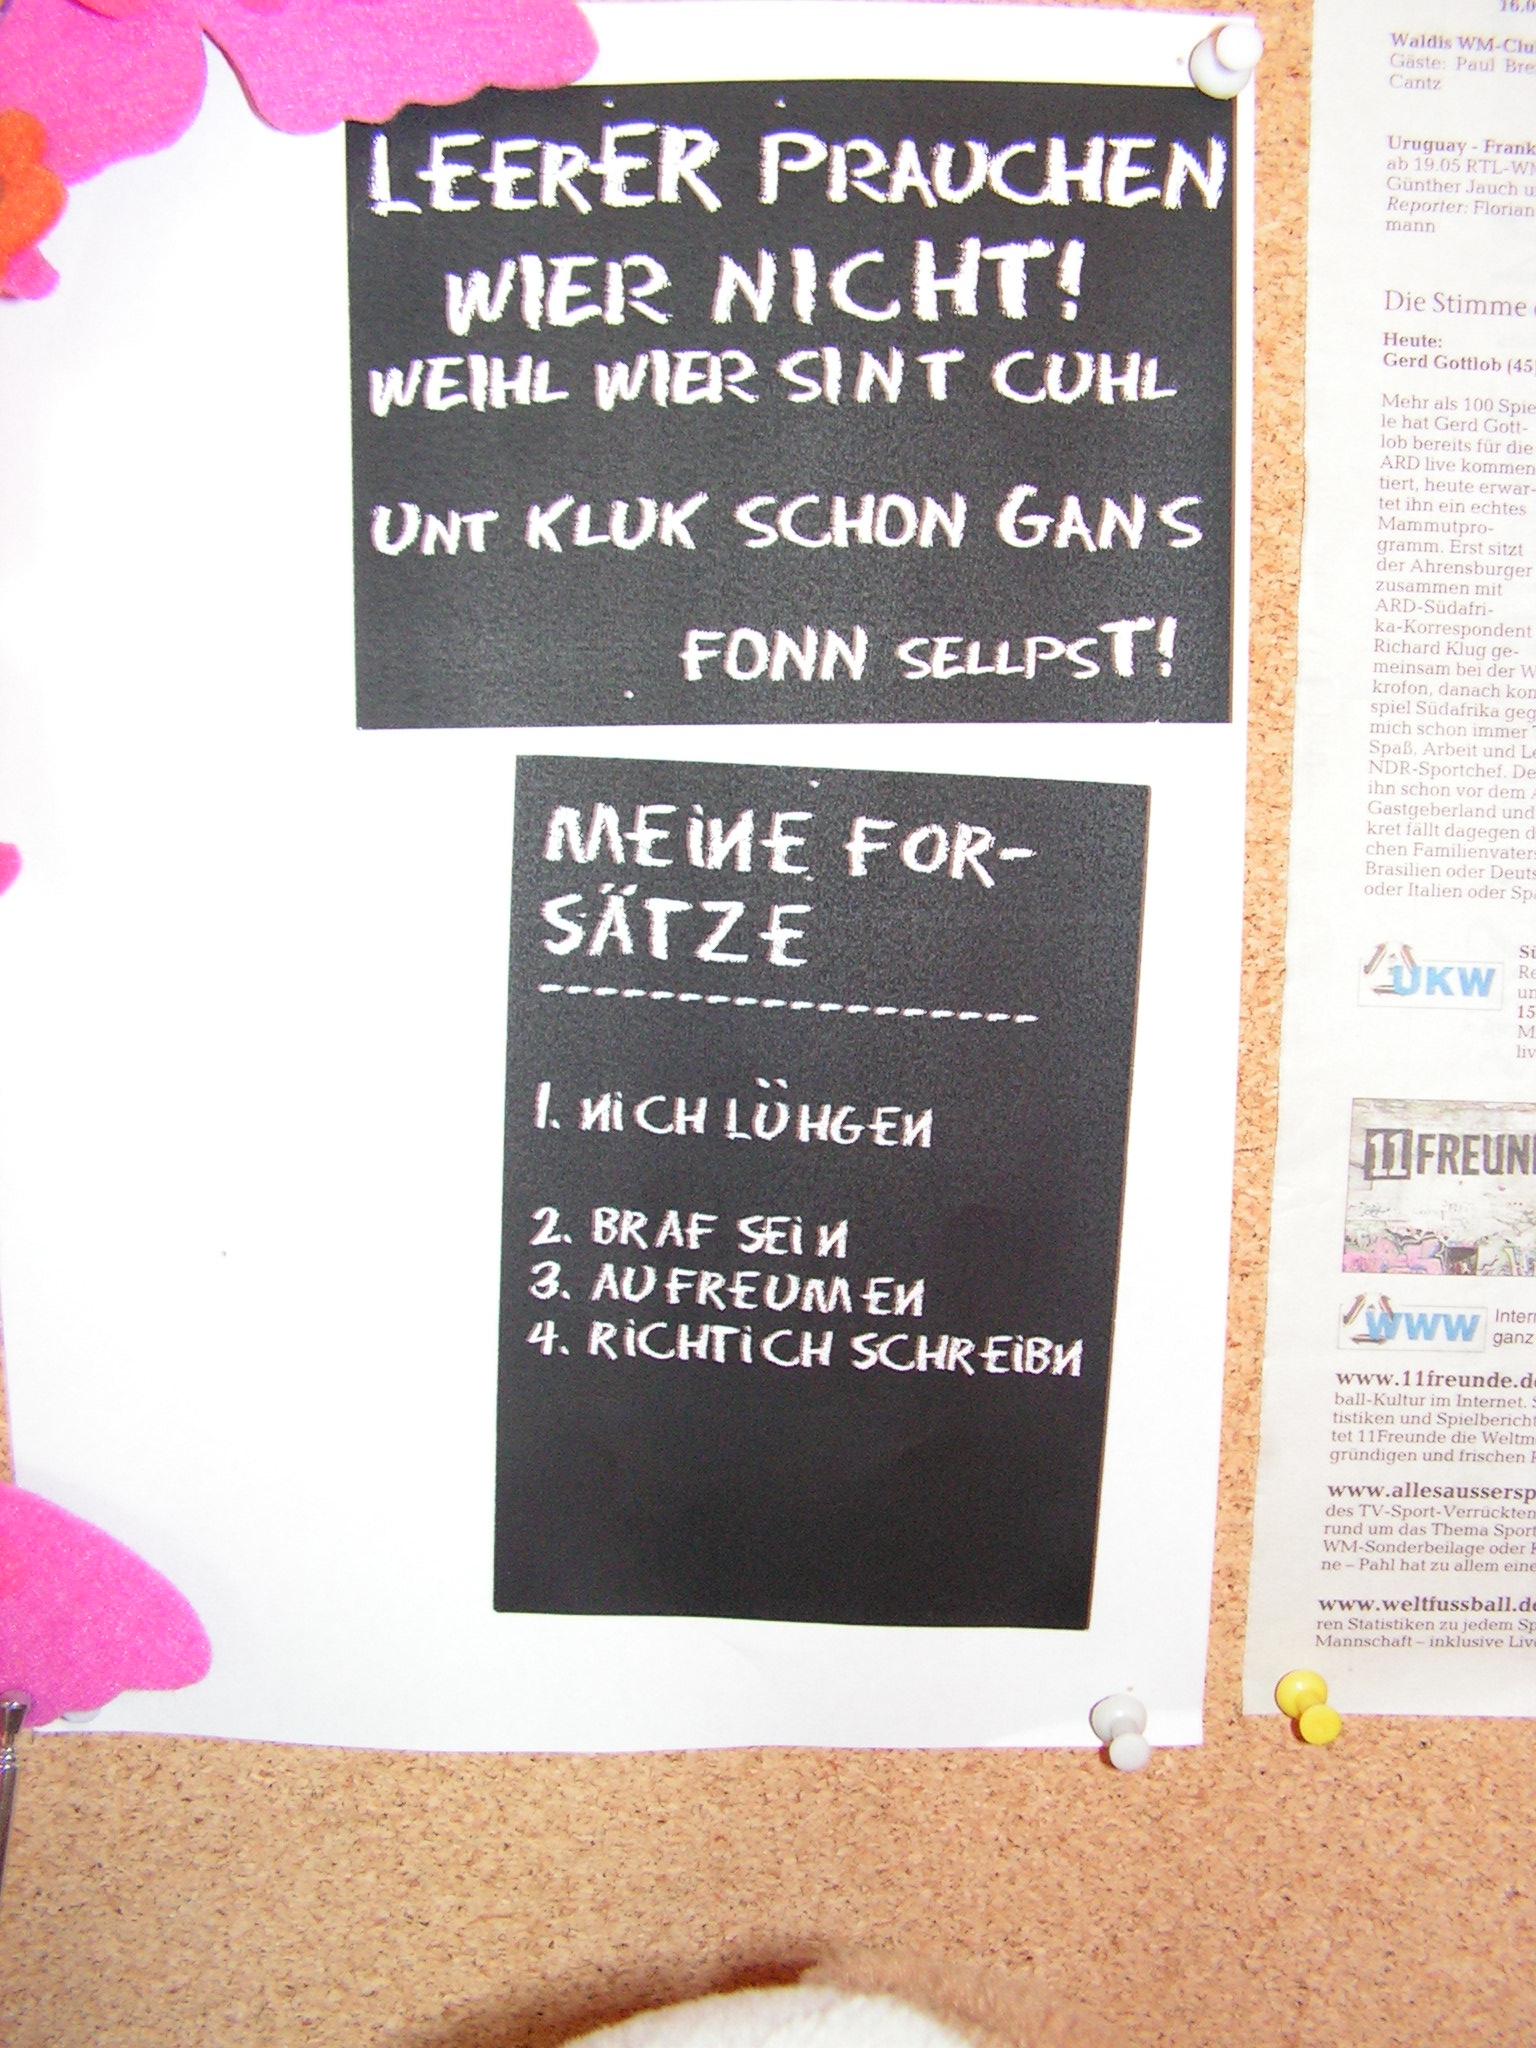 LEERER PRAUCHEN
WIER NICHT!
WEIHL WIER SINT CUHL
UNT KLUK SCHON GANS
FONN SELLPST!
MEINE FOR-
SÄTZE
------------------
1. NICH LÜHGEN
2. BRAF SEIN
3. AUFREUMEN
4. RICHTICH SCHREIBN
Waldis WM-Clu
Gäste: Paul Bre
Cantz
Uruguay - Frank
ab 19.05 RTL-WM
Günther Jauch u
Reporter: Florian
mann
Die Stimme
Heute:
Gerd Gottlob (45)
Mehr als 100 Spie
le hat Gerd Gott-
lob bereits für die
ARD live kommen
tiert, heute erwar-
tet ihn ein echtes
Mammutpro-
gramm. Erst sitzt
der Ahrensburger
zusammen mit
ARD-Südafri-
ka-Korrespondent
Richard Klug ge-
meinsam bei der W
krofon, danach kom
spiel Südafrika geg
mich schon immer
Spaß, Arbeit und Le
NDR-Sportchef. De
ihn schon vor dem A
Gastgeberland und
kret fällt dagegen d
chen Familienvaters
Brasilien oder Deuts
oder Italien oder Spa
UKW
11FREUN
WWW
Inter
ganz
www.11freunde.de
ball-Kultur im Internet. S
tistiken und Spielbericht
tet 11Freunde die Weltme
gründigen und frischen
www.allesaussersp
des TV-Sport-Verrückten
rund um das Thema Sport
WM-Sonderbeilage oder
ne – Pahl hat zu allem eine
www.weltfussball.de
ren Statistiken zu jedem Sp
Mannschaft – inklusive Liv